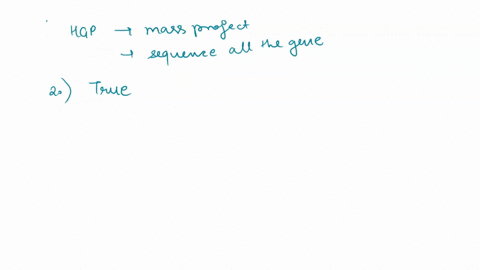 HGP → mass project
→ sequence all the gene
2.) True